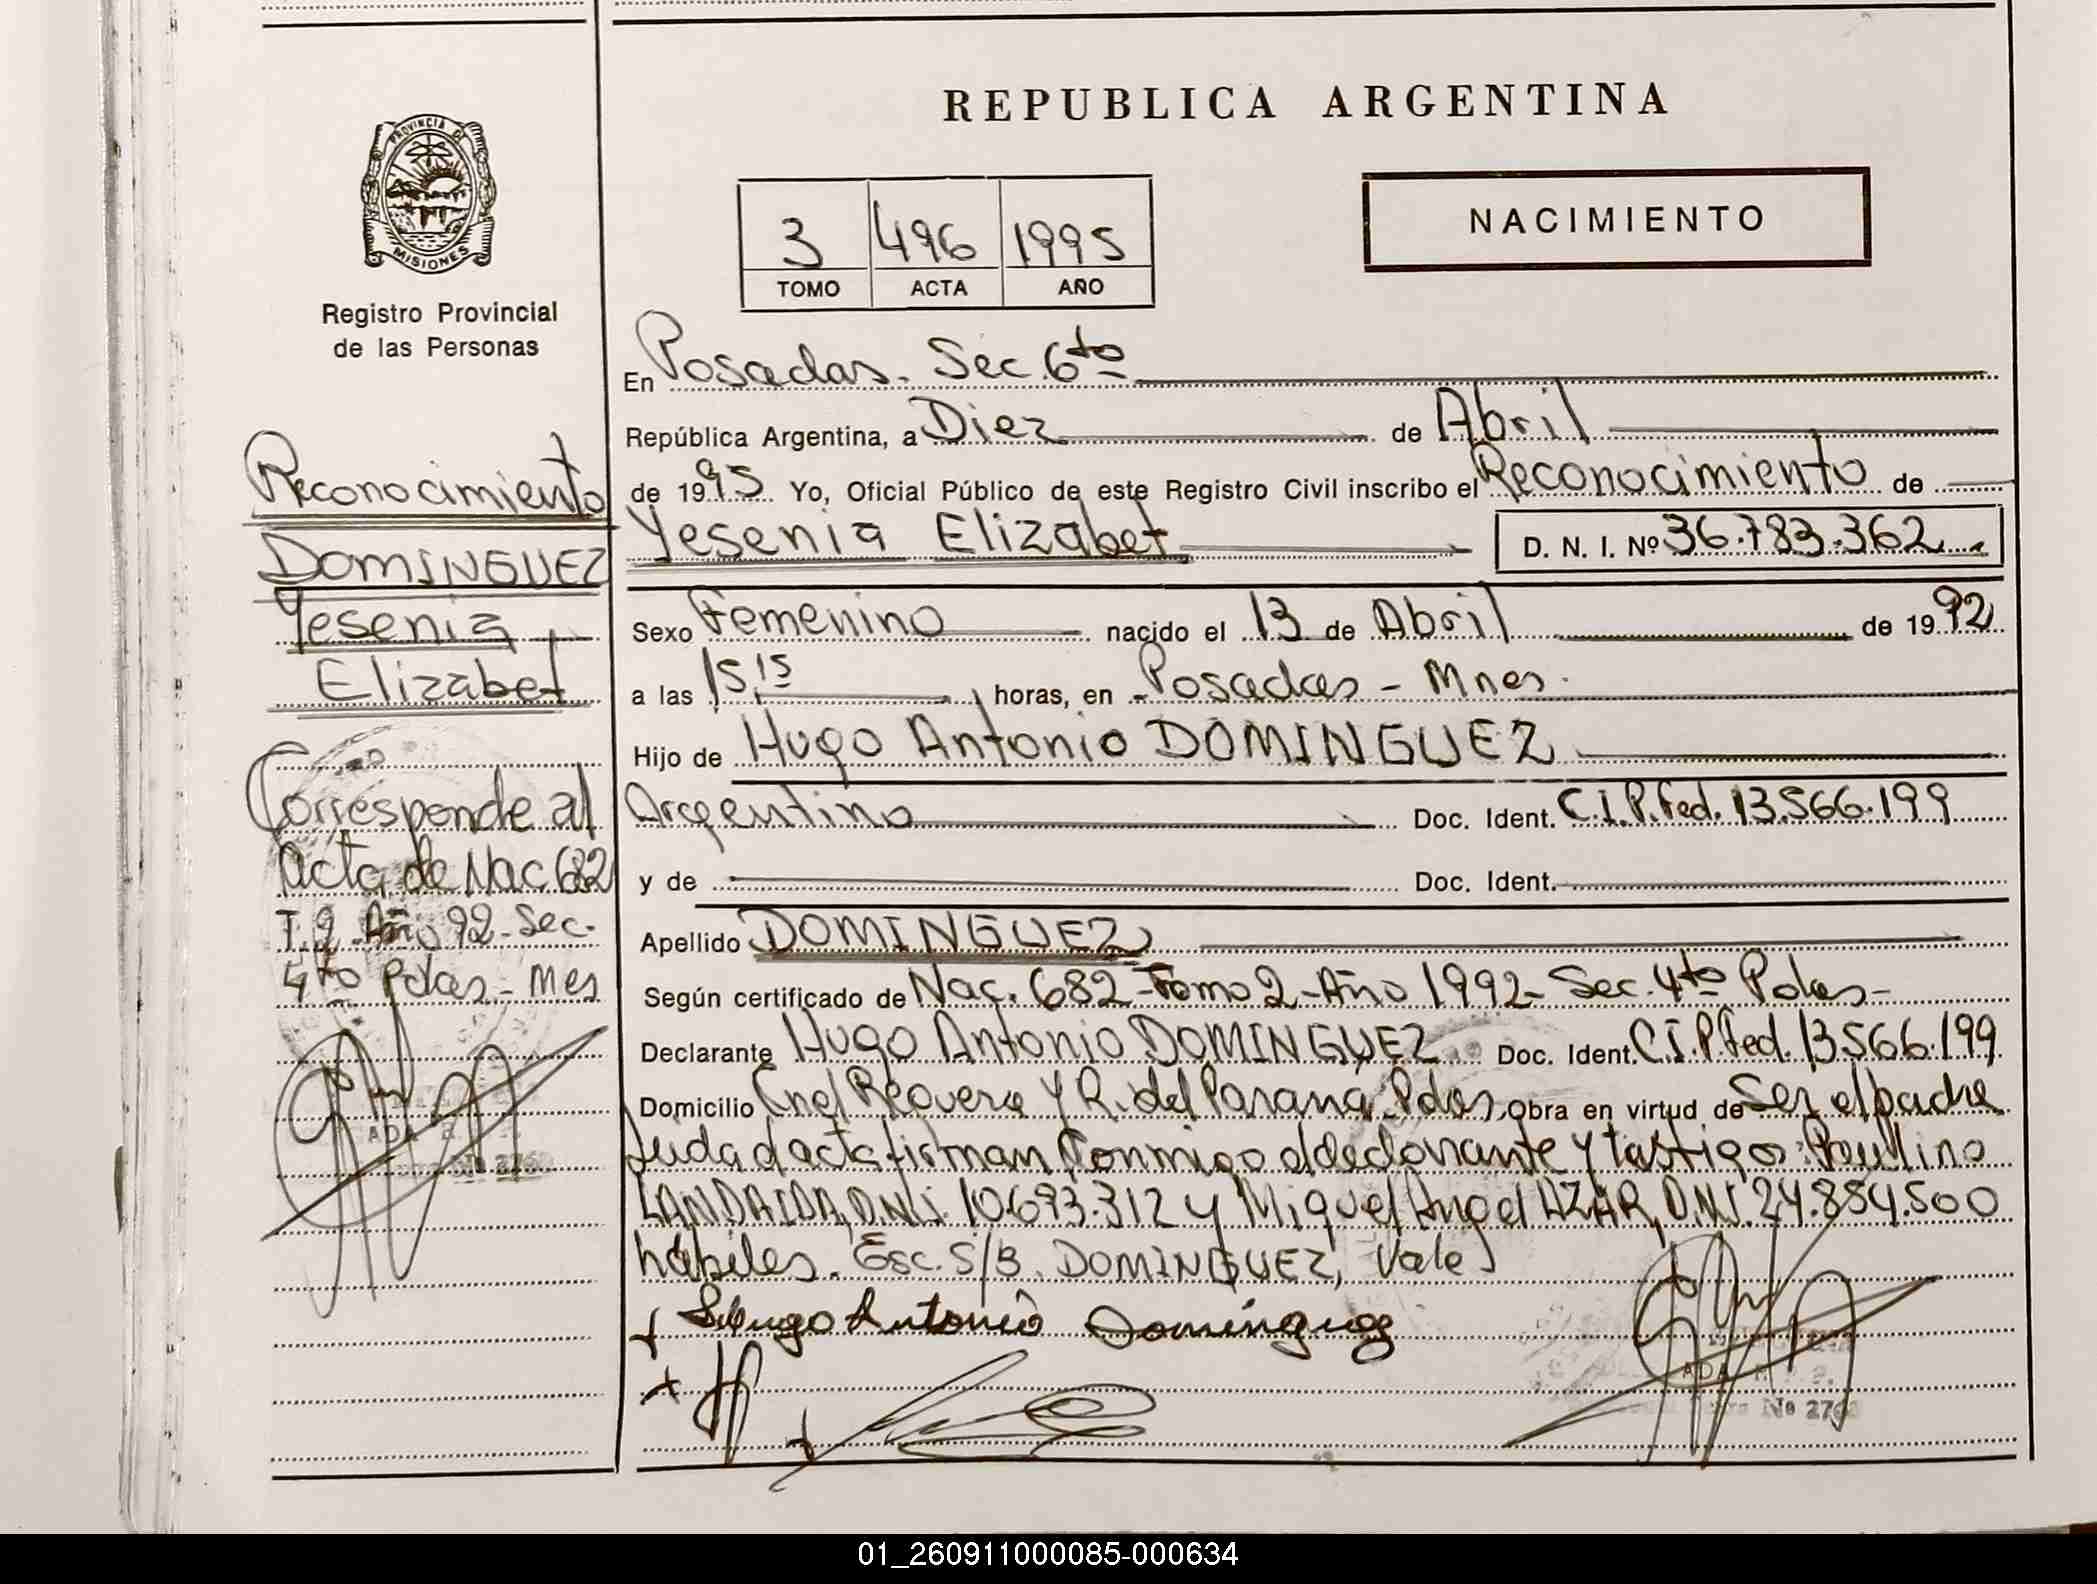 REPUBLICA ARGENTINA
PROVINCIA DE
MISIONES
Registro Provincial
de las Personas
NACIMIENTO
3 496 1995
TOMO ACTA AÑO
En Posadas. Sec. 6to
República Argentina, a Diez de Abril
de 1995 Yo, Oficial Público de este Registro Civil inscribo el Reconocimiento de
Yesenia Elizabet D. N. I. Nº 36.783.362
Sexo Femenino nacido el 13 de Abril de 1992
a las 15,15 horas, en Posadas - Mnes.
Hijo de Hugo Antonio DOMINGUEZ
Argentino Doc. Ident. C.I.P.Fed. 13.566.199
y de Doc. Ident.
Apellido DOMINGUEZ
Según certificado de Nac. 682-Tomo 2-Año 1992- Sec. 4to Pdas-
Declarante Hugo Antonio DOMINGUEZ Doc. Ident. C.I.P.Fed. 13.566.199
Domicilio Cnel y R. del Parana Pdas, obra en virtud de Ser el padre
acta firman conmigo el declarante y testigos: Paulino
D.N.I. 10.693.312 y Miguel Angel AZAR, D.N.I. 24.854.500
hábiles. Esc. S/B. DOMINGUEZ, Vale
Hugo Antonio Dominguez
ADA
No 27
Reconocimiento
DOMINGUEZ
Yesenia
Elizabet
Corresponde al
acta de Nac 682
T.2 Año 92-Sec.
4to Pdas-Mes
ADA
01_260911000085-000634